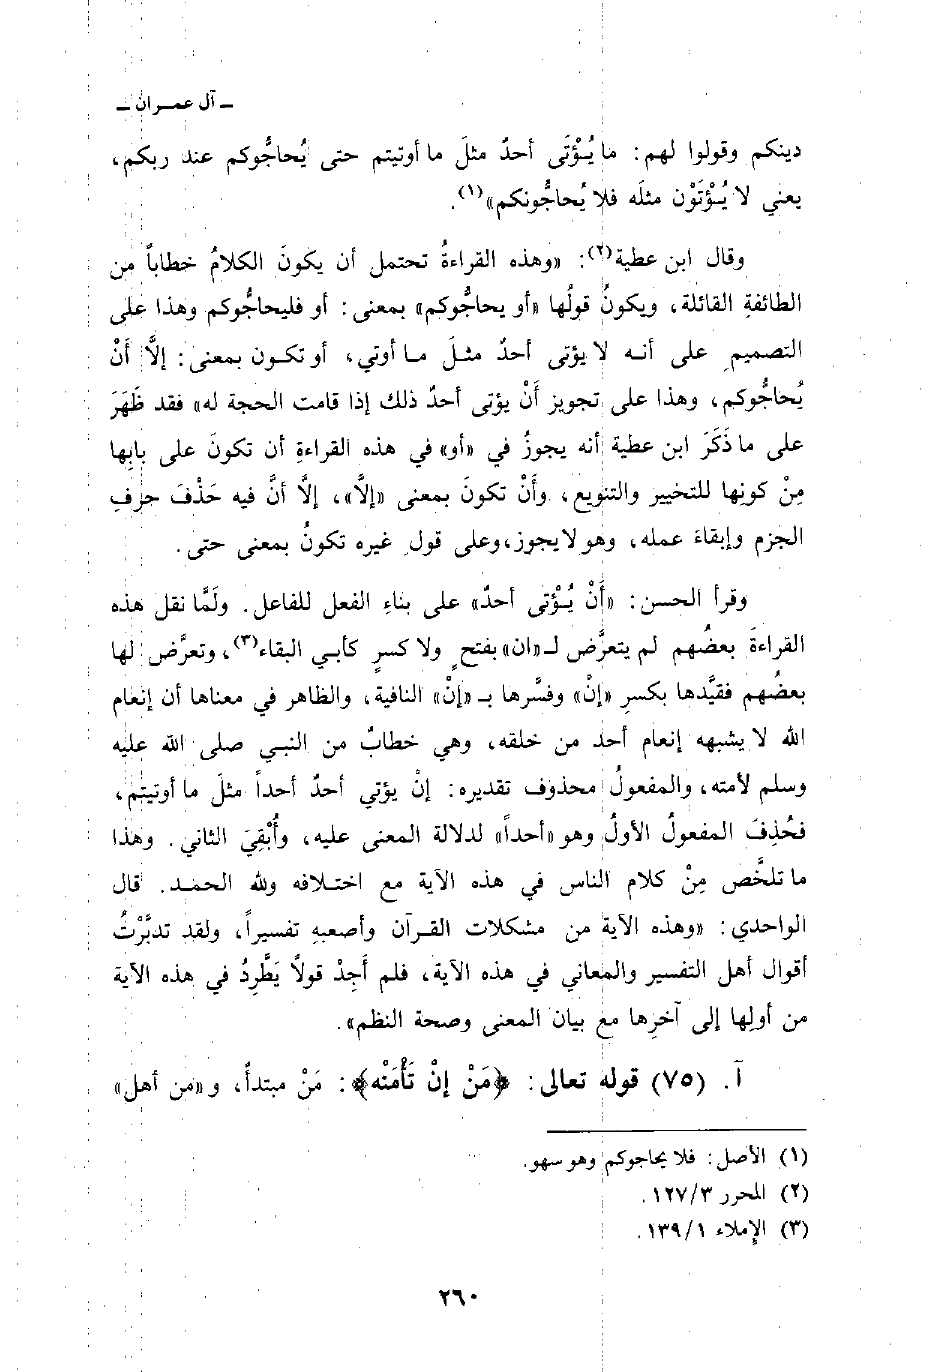 ـ آل عمـران ـ
دينكم وقولوا لهم: ما يُؤْتَى أحدٌ مثلَ ما أوتيتم حتى يُحاجُّوكم عند ربكم،
يعني لا يُؤْتَوْن مثلَه فلا يُحاجُّونكم»(١).
وقال ابن عطية(٢): «وهذه القراءةُ تحتمل أن يكونَ الكلامُ خطاباً من
الطائفةِ القائلة، ويكونُ قولُها «أو يحاجُّوكم» بمعنى: أو فليحاجُّوكم وهذا على
التصميمِ على أنـه لا يؤتى أحدٌ مثـلَ مـا أوتي، أو تكـون بمعنى: إلَّا أَنْ
يُحاجُّوكم، وهذا على تجويز أَنْ يؤتى أحدٌ ذلك إذا قامت الحجة له» فقد ظَهَرَ
على ما ذَكَرَ ابن عطية أنه يجوزُ في «أو» في هذه القراءةِ أن تكونَ على بابِها
مِنْ كونِها للتخيير والتنويع، وأَنْ تكونَ بمعنى «إلَّا»، إلَّا أنَّ فيه حَذْفَ حرفِ
الجزم وإبقاءَ عمله، وهو لا يجوز، وعلى قولِ غيره تكونُ بمعنى حتى.
وقرأ الحسن: «أَنْ يُؤْتى أحدٌ» على بناءِ الفعل للفاعل. ولَمَّا نقل هذه
القراءةَ بعضُهم لم يتعرَّض لـ«ان» بفتحٍ ولا كسرٍ كأبـي البقاء(٣)، وتعرَّض لها
بعضُهم فقيَّدها بكسرِ «إنْ» وفسَّرها بـ «إنْ» النافية، والظاهر في معناها أن إنعام
الله لا يشبهه إنعام أحد من خلقه، وهي خطابٌ من النبـي صلى الله عليه
وسلم لأمته، والمفعولُ محذوف تقديره: إنْ يؤتي أحدٌ أحداً مثلَ ما أوتيتم،
فحُذِفَ المفعولُ الأولُ وهو «أحداً» لدلالة المعنى عليه، وأُبْقِيَ الثاني. وهذا
ما تلخَّص مِنْ كلام الناس في هذه الآية مع اختـلافه ولله الحمـد. قال
الواحدي: «وهذه الآية من مشكلات القـرآن وأصعبهِ تفسيراً، ولقد تدبَّرْتُ
أقوال أهل التفسير والمعاني في هذه الآية، فلم أَجِدْ قولاً يَطَّرِدُ في هذه الآية
من أولِها إلى آخرِها مع بيان المعنى وصحة النظم».
آ. (٧٥) قوله تعالى: ﴿مَنْ إنْ تَأْمَنْه﴾: مَنْ مبتدأٌ، و«من أهل»
(١) الأصل: فلا يحاجوكم وهو سهو.
(٢) المحرر ١٢٧/٣.
(٣) الإملاء ١٣٩/١.
٢٦٠